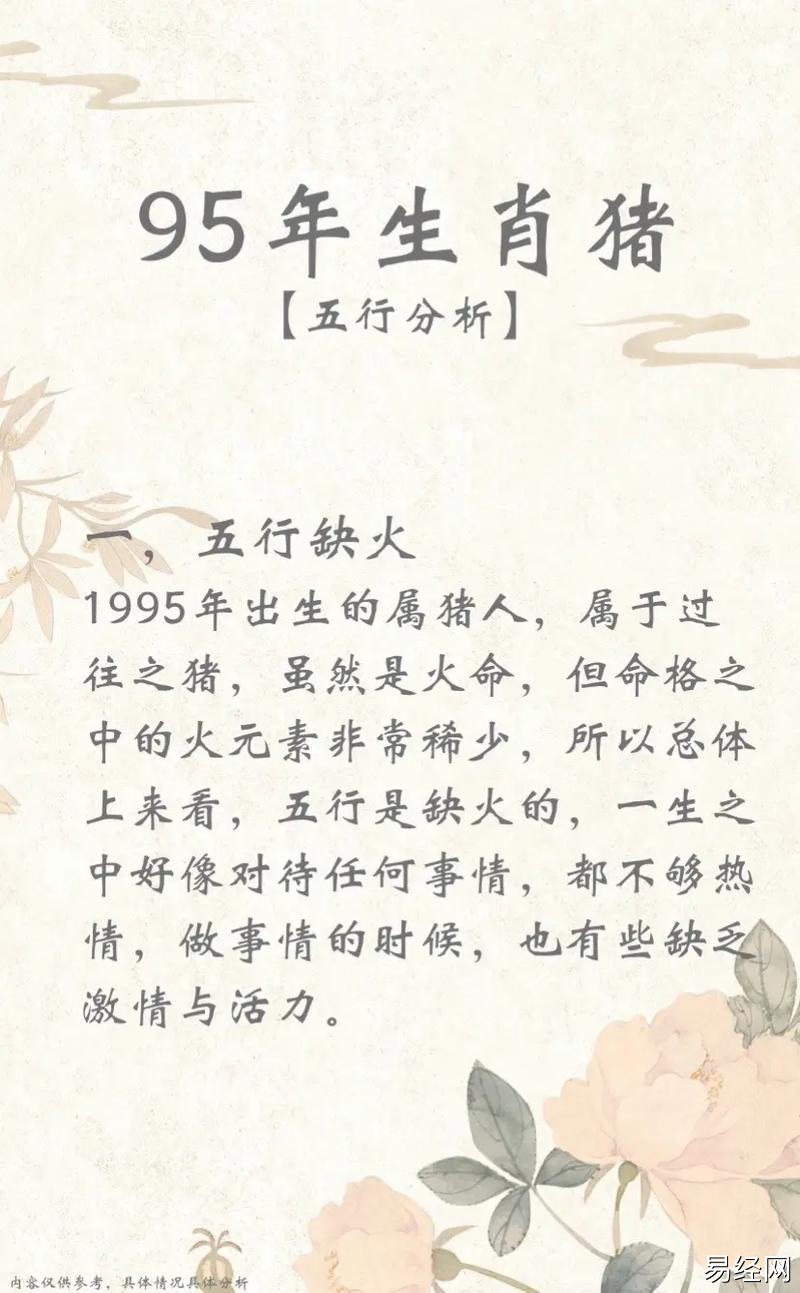 95年生肖猪
【五行分析】
一，五行缺火
1995年出生的属猪人，属于过
往之猪，虽然是火命，但命格之
中的火元素非常稀少，所以总体
上来看，五行是缺火的，一生之
中好像对待任何事情，都不够热
情，做事情的时候，也有些缺乏
激情与活力。
内容仅供参考，具体情况具体分析
易经网